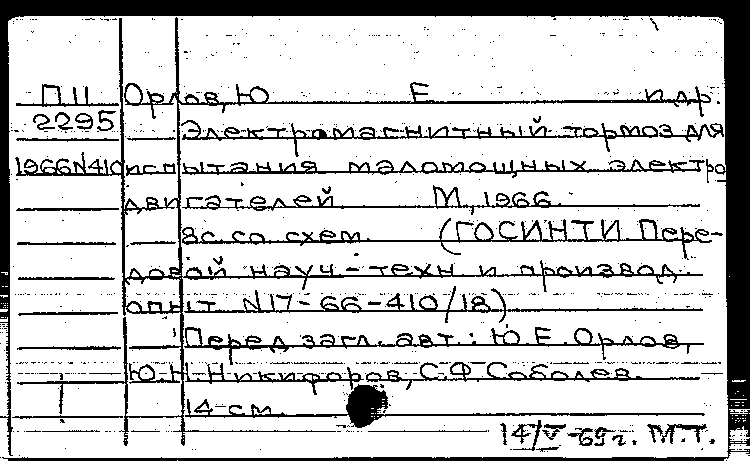 П11 Орлов, Ю Е и др.
2295 Электромагнитный тормоз для
1966N410 испытания маломощных электро
двигателей. М., 1966.
8с. со схем. (ГОСИНТИ. Пере-
довой науч.-техн и производ.
опыт. N17-66-410/18)
Перед загл. авт.: Ю.Е.Орлов,
Ю.Н.Никифоров, С.Ф.Соболев.
14 см.
14/V-69г. М.Т.